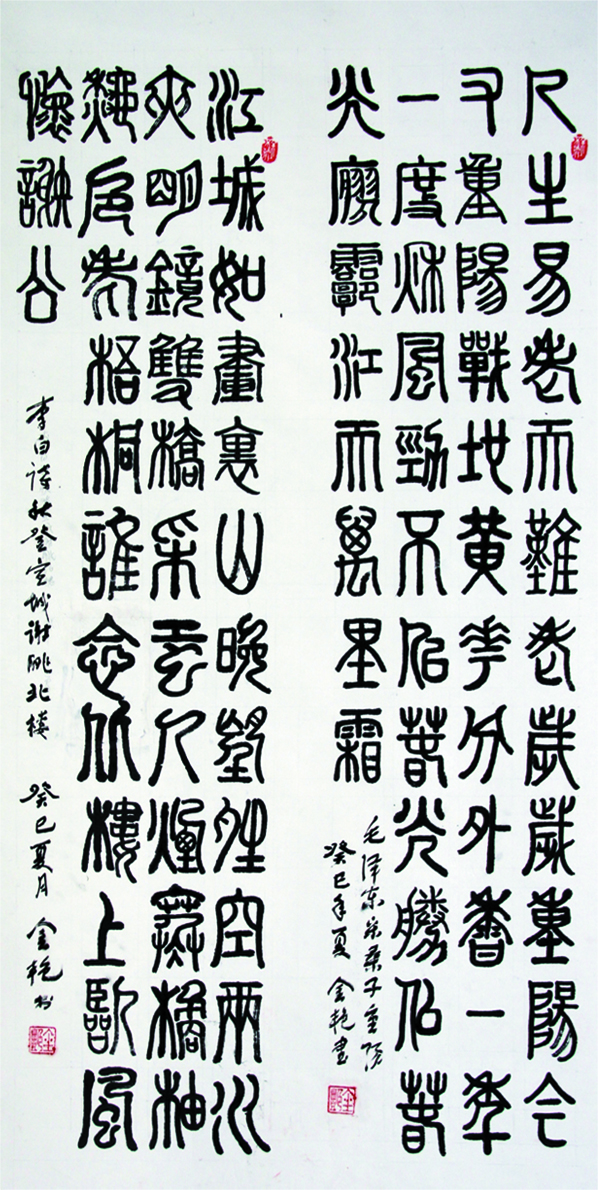 人生易老天難老歲歲重陽今
又重陽戰地黃花分外香一年
一度秋風勁不似春光勝似春
光寥廓江天萬里霜
毛泽东采桑子重阳
癸巳年夏 金艳書
江城如畫裏山晚望晴空兩水
夾明鏡雙橋采虹人煙寒橘柚
秋色老梧桐誰念北樓上臨風
懷謝公
李白诗秋登宣城谢朓北楼 癸巳夏月 金艳书